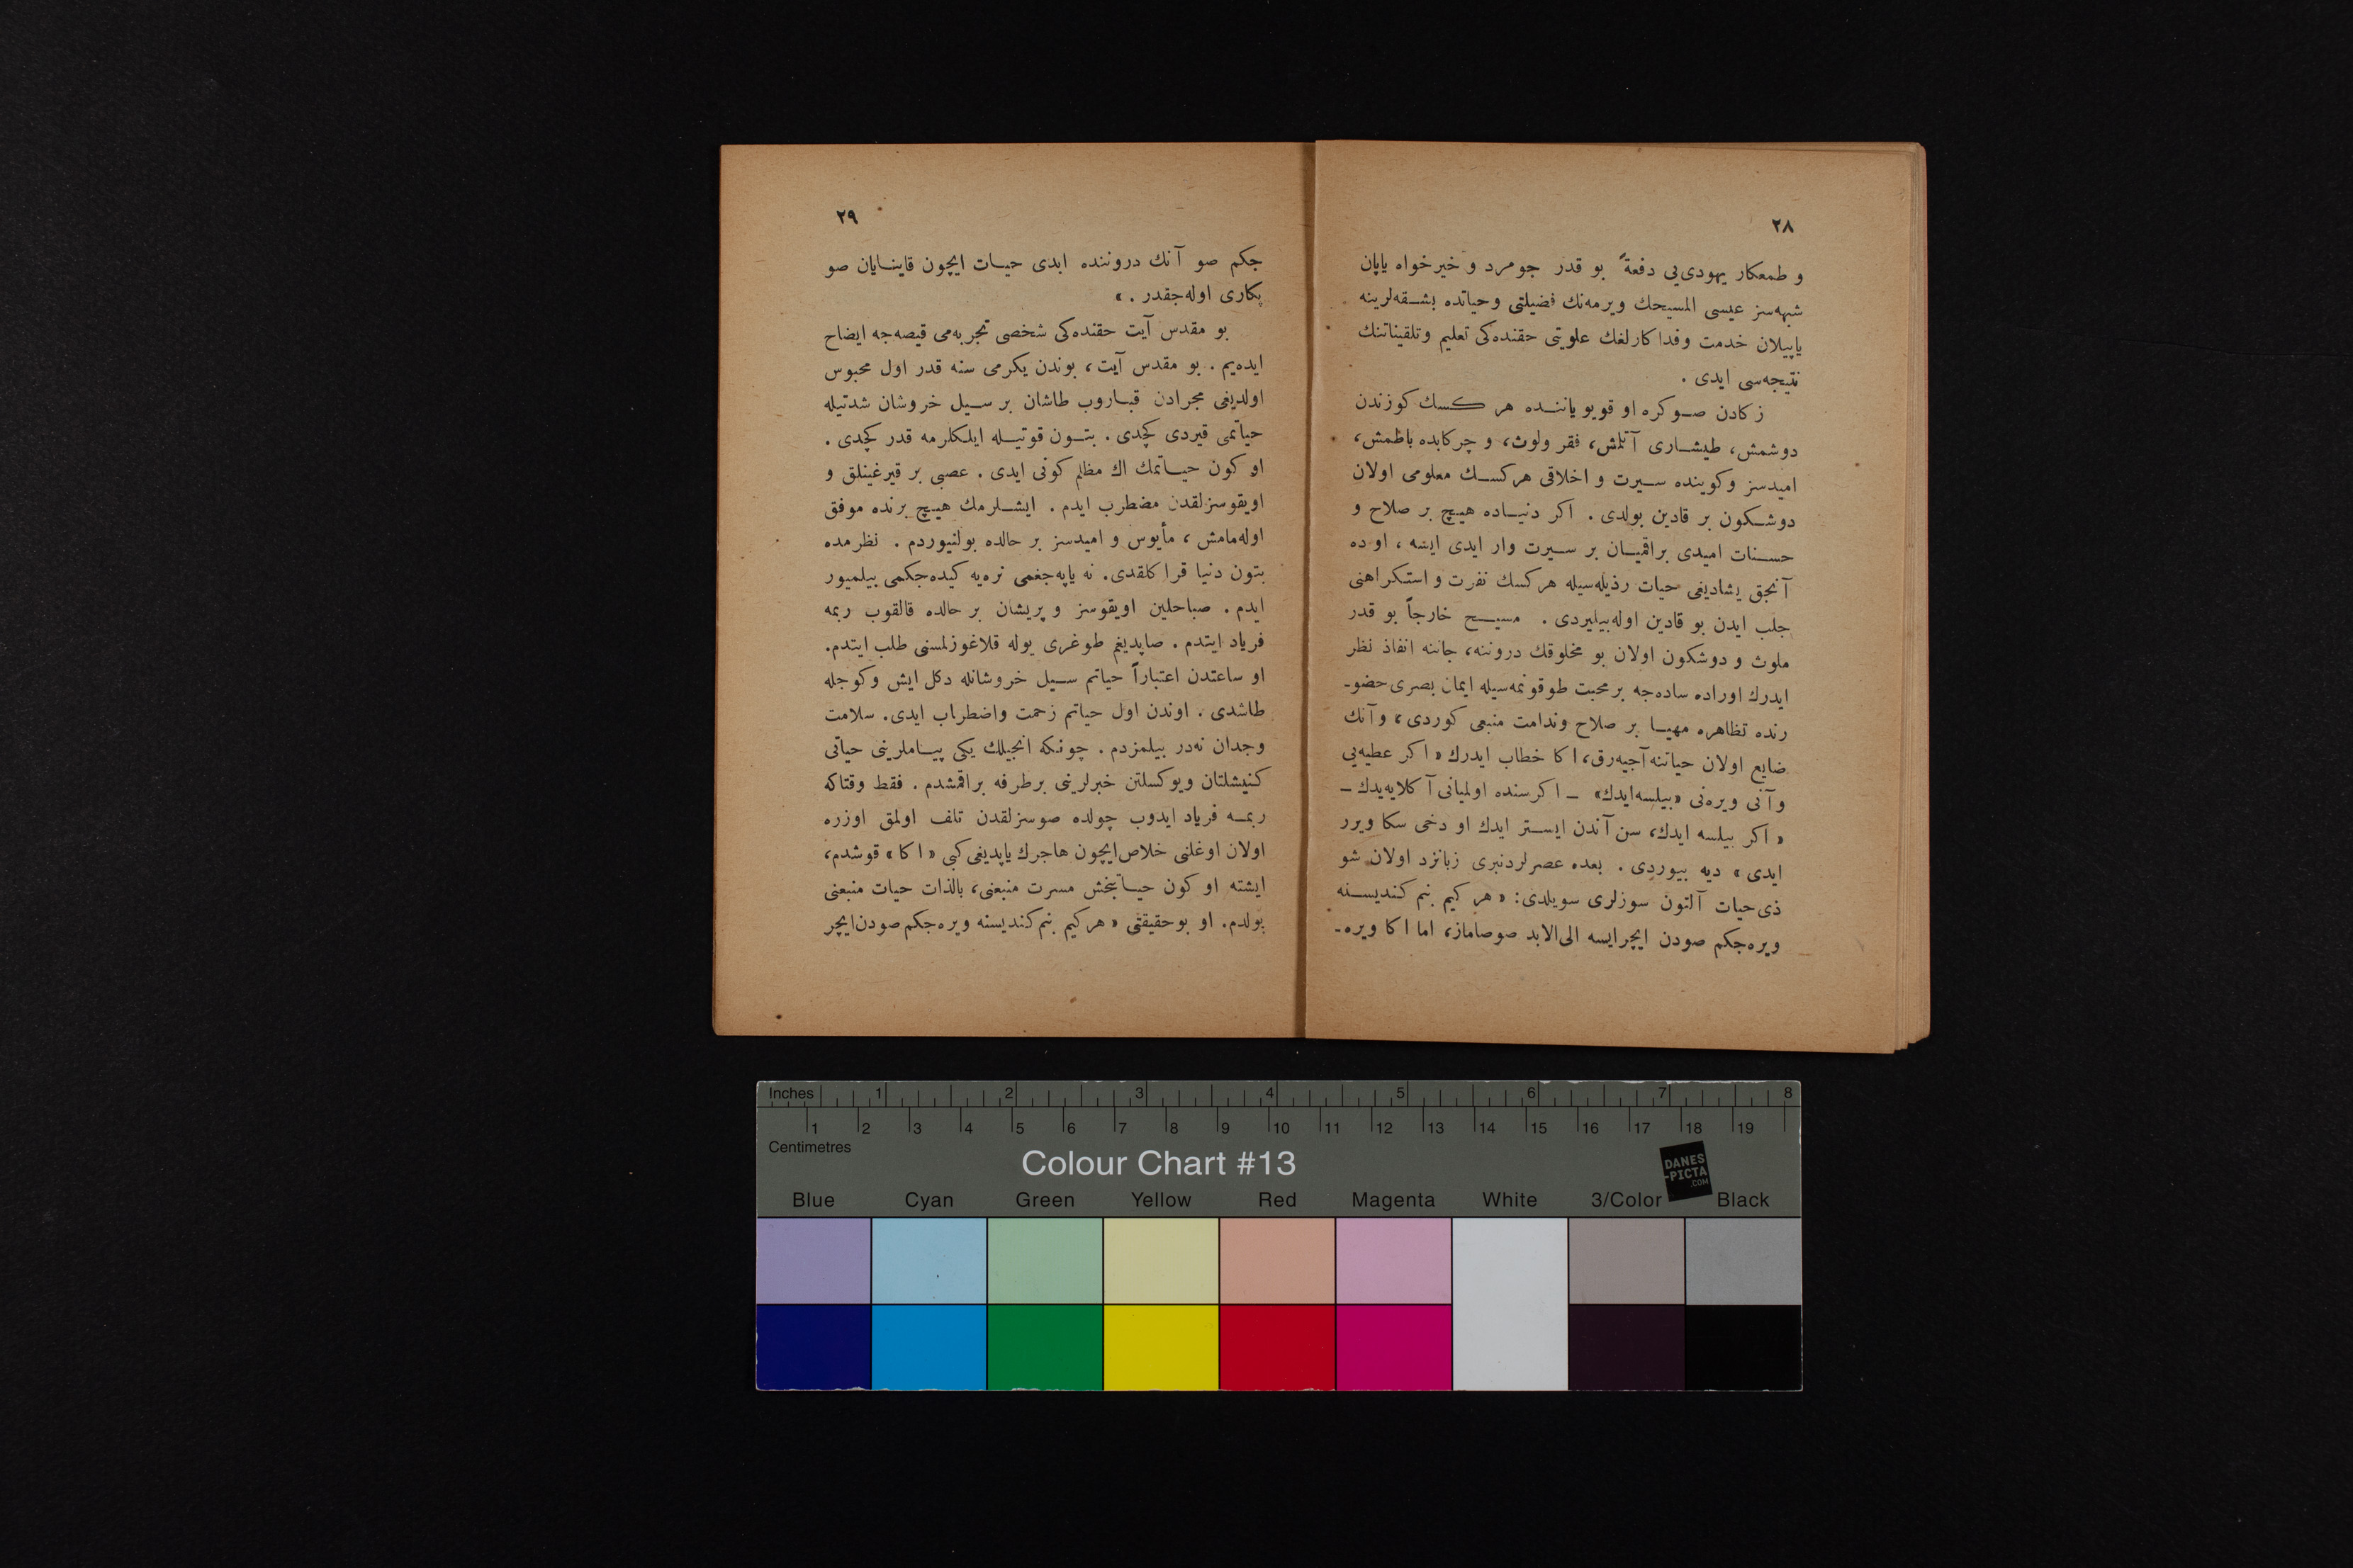 ٢٨
و طمعكار يهودى‌يى دفعةً بو قدر جومرد و خيرخواه ياپان
شبهه‌سز عيسى المسيحك ويرمه‌نك فضيلتى وحياتده بشقه‌لرينه
ياپيلان خدمت وفداكارلغك علويتى حقنده‌كى تعليم وتلقيناتنك
نتيجه‌سى ايدى .
زكادن صوكره او قويو ياننده هر كسك كوزندن
دوشمش، طيشارى آتلمش، فقر ولوث، و چركابده باطمش،
اميدسز وكوينده سيرت و اخلاقى هركسك معلومى اولان
دوشكون بر قادين بولدى . اكر دنياده هيچ بر صلاح و
حسنات اميدى براقميان بر سيرت وار ايدى ايسه ، او ده
آنجق يشاديغى حيات رذيله‌سيله هركسك نفرت و استكراهنى
جلب ايدن بو قادين اوله‌بيليردى . مسيح خارجاً بو قدر
ملوث و دوشكون اولان بو مخلوقك دروننه، جاننه انفاذ نظر
ايدرك اوراده ساده‌جه بر محبت طوقونمه‌سيله ايمان بصرى حضو-
رنده تظاهره مهيا بر صلاح وندامت منبعى كوردى، و آنك
ضايع اولان حياتنه آجيه‌رق، اكا خطاب ايدرك « اكر عطيه‌يى
و آنى ويره‌نى «بيلسه‌ايدك» ــ اكر سنده اولميانى آكلايه‌يدك ــ
« اكر بيلسه ايدك، سن آندن ايستر ايدك او دخى سكا ويرر
ايدى » ديه بيوردى . بعده عصرلردنبرى زبانزد اولان شو
ذى‌حيات آلتون سوزلرى سويلدى: « هر كيم بنم كنديسنه
ويره‌جكم صودن ايچرايسه الى‌الابد صوصاماز، اما اكا ويره-
٢٩
جكم صو آنك دروننده ابدى حيات ايچون قاينايان صو
پكارى اوله‌جقدر . »
بو مقدس آيت حقنده‌كى شخصى تجربه‌مى قيصه‌جه ايضاح
ايده‌يم . بو مقدس آيت، بوندن يكرمى سنه قدر اول محبوس
اولديغى مجرادن قباروب طاشان بر سيل خروشان شدتيله
حياتمى قيردى كچدى . بتون قوتيله ايلكلرمه قدر كچدى .
او كون حياتمك اك مظلم كونى ايدى . عصبى بر قيرغينلق و
اويقوسزلقدن مضطرب ايدم . ايشلرمك هيچ برنده موفق
اوله‌مامش ، مأيوس و اميدسز بر حالده بولنيوردم . نظرمده
بتون دنيا قراكلقدى. نه ياپه‌جغمى نره‌يه كيده‌جكمى بيلميور
ايدم . صباحلين اويقوسز و پريشان بر حالده قالقوب ربمه
فرياد ايتدم . صاپديغم طوغرى يوله قلاغوزلمسنى طلب ايتدم.
او ساعتدن اعتباراً حياتم سيل خروشانله دكل ايش وكوجله
طاشدى . اوندن اول حياتم زحمت واضطراب ايدى. سلامت
وجدان نه‌در بيلمزدم . چونكه انجيلك يكى پياملرينى حياتى
كنيشلتان ويوكسلتن خبرلرينى برطرفه براقمشدم . فقط وقتاكه
ربمه فرياد ايدوب چولده صوسزلقدن تلف اولمق اوزره
اولان اوغلنى خلاص‌ايچون هاجرك ياپديغى كبى «اكا» قوشدم،
ايشته او كون حياتبخش مسرت منبعنى، بالذات حيات منبعنى
بولدم. او بوحقيقتى « هركيم بنم كنديسنه ويره‌جكم صودن‌ايچر
Inches 1 2 3 4 5 6 7 8
1 2 3 4 5 6 7 8 9 10 11 12 13 14 15 16 17 18 19
Centimetres
Colour Chart #13
DANES
-PICTA
.COM
Blue Cyan Green Yellow Red Magenta White 3/Color Black